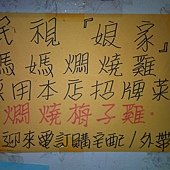 民視『娘家』
媽媽燜燒雞
原用本店招牌菜
燜燒梅子雞.
迎來電訂購宅配/外帶